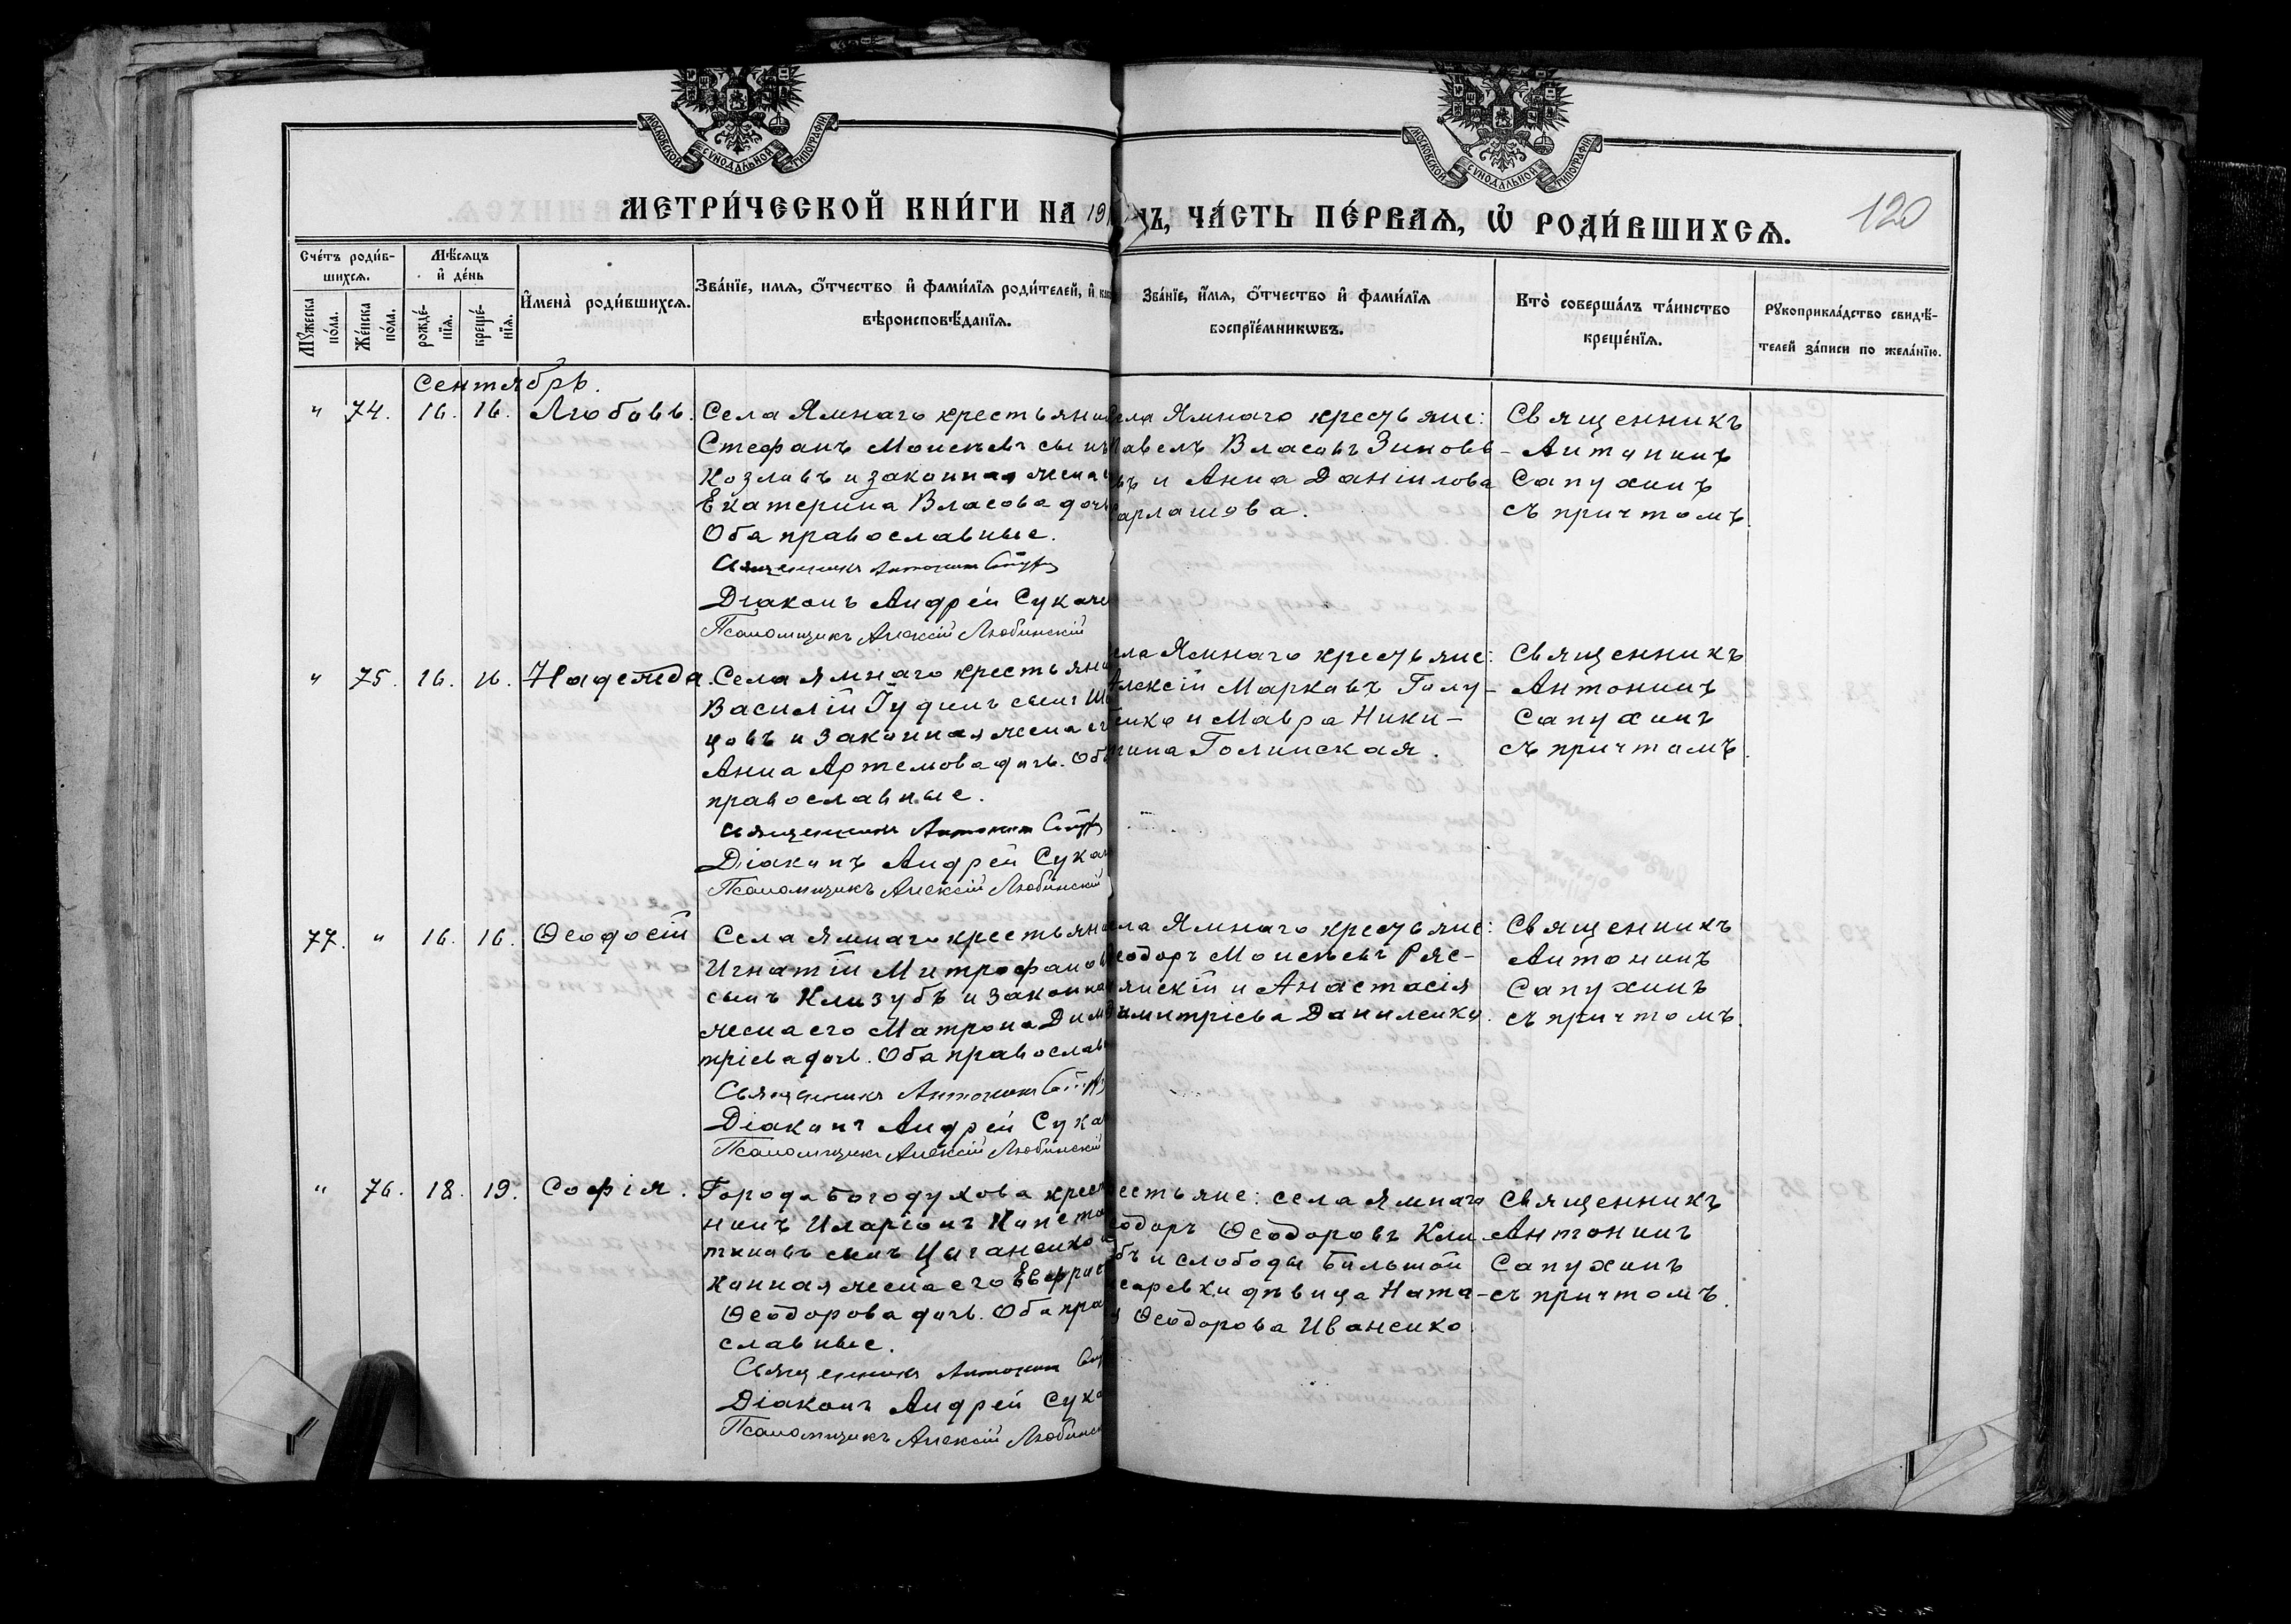 МОСКОВСКОЙ СѴНОДАЛЬНОЙ ТИПОГРАФІИ
МОСКОВСКОЙ СѴНОДАЛЬНОЙ ТИПОГРАФІИ
МЕТРИ́ЧЕСКОЙ КНИ́ГИ НА 191
ЧА́СТЬ ПЕ́РВАѦ, Ѡ҆ РОДИ́ВШИХСѦ.
120
Сче́тъ роди́в-
шихсѧ.
Мѣ́сѧцъ
и҆ де́нь
Мꙋ́жеска по́ла.
Же́нска по́ла.
рожде́-нїѧ.
креще́-нїѧ.
И҆мена̀ роди́вшихсѧ.
Зва́нїе, имѧ, ѻ҆́тчество и҆ фами́лїѧ роди́телей, и҆
вѣроисповѣ́данїѧ.
Зва́нїе, и҆́мѧ, ѻ҆́тчество и҆ фами́лїѧ
воспрїе́мникѡвъ.
Кто̀ соверша́лъ та́инство
креще́нїѧ.
Рꙋкоприкла́дство свидѣ́-
телей за́писи по жела́нїю.
Сентябрь.
" 74. 16. 16. Любовь.
Села Ямнаго крестьяни
Стефанъ Моисѣевъ сынъ
Козловъ и законная жена
Екатерина Власова дочь
Оба православные.
Священникъ Антонинъ
Діаконъ Андрей Сукаче
Псаломщикъ Алексій Любинскій
ела Ямнаго крестьяне:
авелъ Власовъ Зиновь-
въ и Анна Даніилова
арлашова.
Священникъ
Антонинъ
Сапухинъ
съ причтомъ.
" 75. 16. 16. Надежда.
Села Ямнаго крестьяни
Василій Іудинъ сынъ Ш
цовъ и законная жена ег
Анна Артемова дочь. Об
православные.
Священникъ Антонинъ
Діаконъ Андрей Сука
Псаломщикъ Алексій Любинскій
ела Ямнаго крестьяне:
Алексій Марковъ Голу-
енко и Мавра Ники-
тина Голинская.
Священникъ
Антонинъ
Сапухинъ
съ причтомъ.
77. " 16. 16. Ѳеодосій
Села Ямнаго крестьяни
Игнатій Митрофано
сынъ Клизубъ и законна
жена его Матрона Дим
тріева дочь. Оба православ
Священникъ Антонинъ
Діаконъ Андрей Сука
Псаломщикъ Алексій Любинскій
ела Ямнаго крестьяне:
еодоръ Моисѣевъ Ряс-
янскій и Анастасія
Димитріева Даниленко.
Священникъ
Антонинъ
Сапухинъ
съ причтомъ.
" 76. 18. 19. Софія.
Города Богодухова крест
нинъ Иларіонъ Констан
тиновъ сынъ Цыганенко
конная жена его Евфрос
Ѳеодорова дочь. Оба пра
славные.
Священникъ Антонинъ
Діаконъ Андрей Сука
Псаломщикъ Алексій Любинск
рестьяне: села Ямнаго
еодоръ Ѳеодоровъ Кли-
убъ и слободы Большой
исаревки дѣвица Ната-
я Ѳеодорова Иваненко.
Священникъ
Антонинъ
Сапухинъ
съ причтомъ.